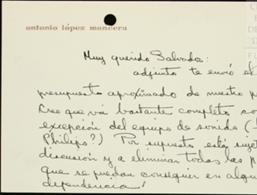 antonio lópez mancera
Muy querido Salvador:
adjunto te envío el
presupuesto aproximado de nuestro
Creo que va bastante completo
excepción del equipo de sonido (
Philips?) Por supuesto está
discusión y a eliminar todas las
que se puedan conseguir en
dependencia!